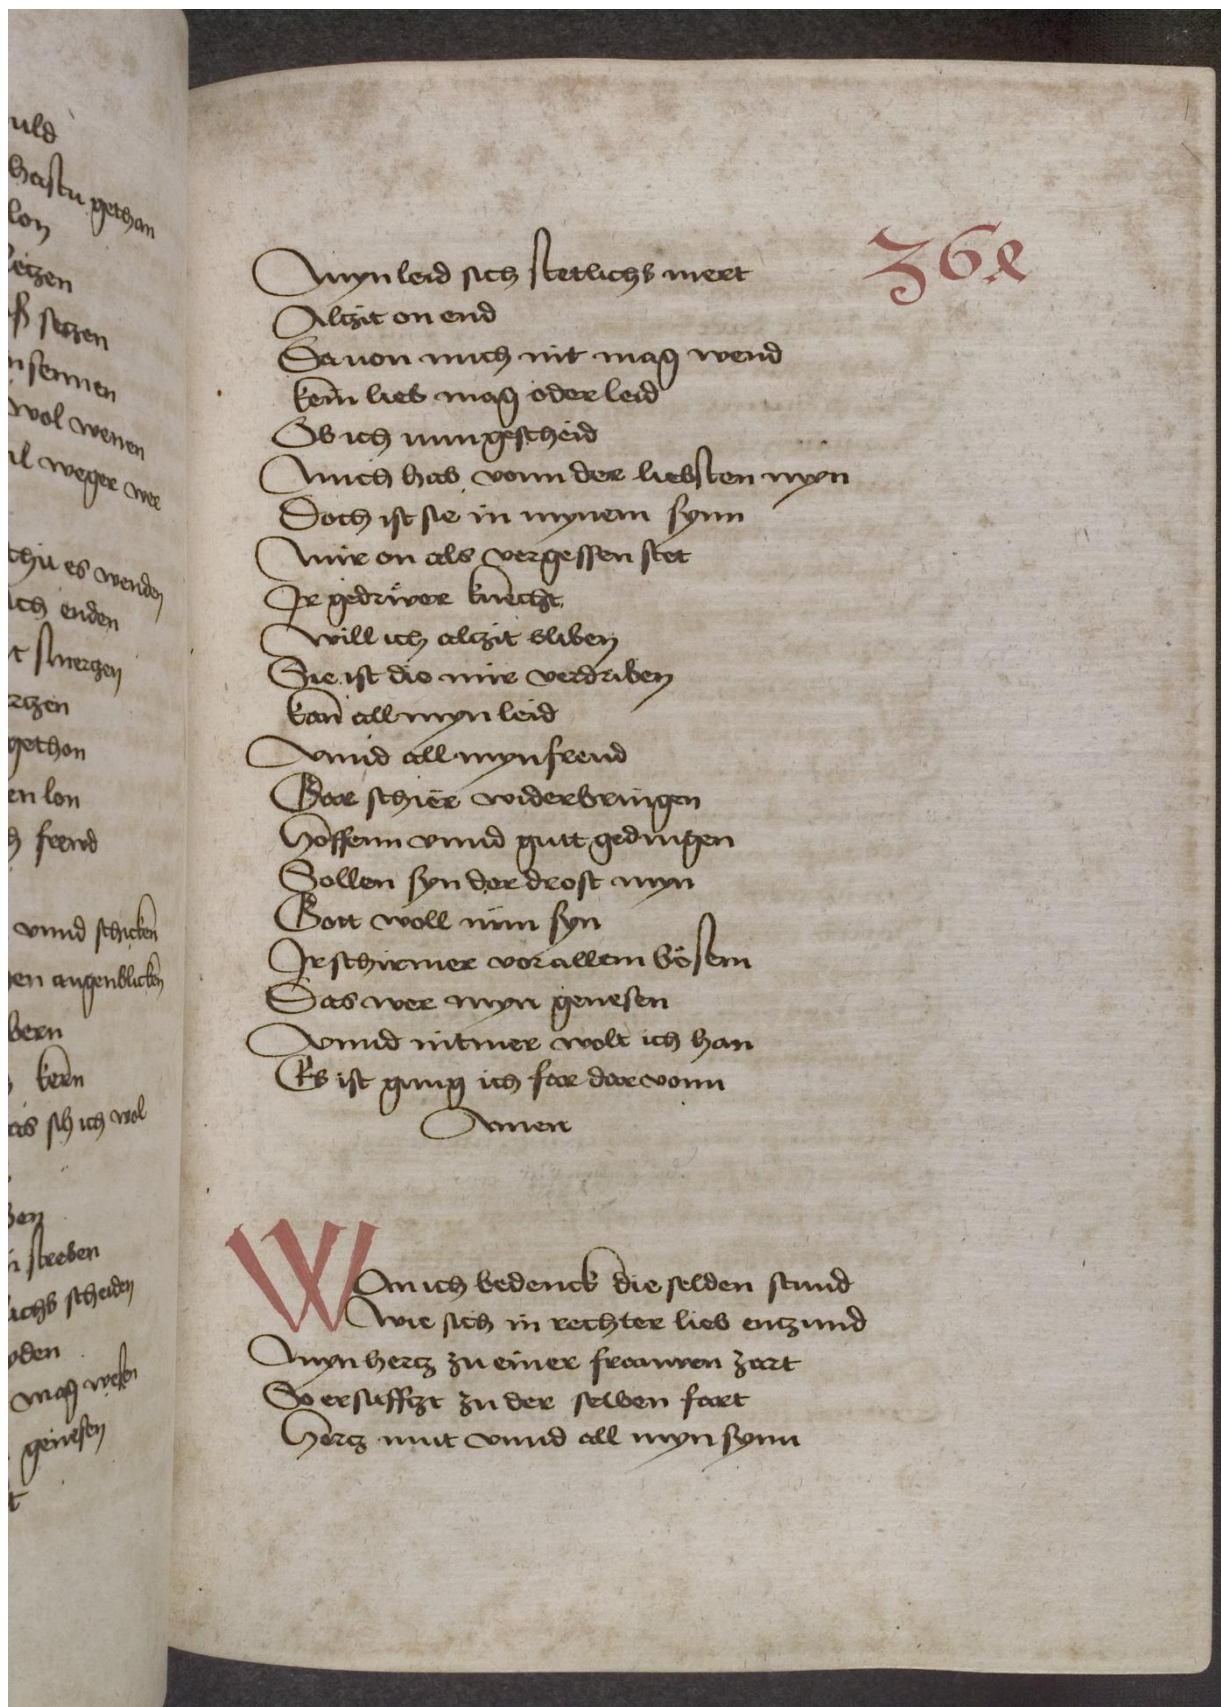 uld
hastu gethan
lon
etzen
setzen
sennen
wol wenen
il weger wer
thu es wenden
ich enden
t smertzen
rtzen
gethon
en lon
h freud
vnnd schicken
en augenblicken
bern
kern
as sih ich wol
en
streben
ichs scheiden
den
mag wesen
genesen
t
36e
Mynleid sich stetlichs mert
Alczit on end
Da von mich nit mag wend
kein lieb mag oder leid
Ob ich nun gescheid
Mich hab vonn der liebsten myn
Doch ist sie in mynem synn
Mir on als vergessen stet
Ir gedrüwer knecht
Will ich alczit bliben
Sie ist die mir verdriben
kan all myn leid
Vnnd all myn freud
Gar schier widerbringen
Hoffenn vnnd gutt gedingen
Sollen syn der drost myn
Gott woll nun syn
Ir schirmer vor allem bösem
Das wer myn genesen
Vnnd nit mer wolt ich han
Es ist gnug ich far dar vonn
Amen
Wan ich bedenck die selden stund
Wie sich in rechter lieb entzund
Myn hertz zu einer frauwen zart
So ersufftzt zu der selben fart
Hertz mut vnnd all myn synn